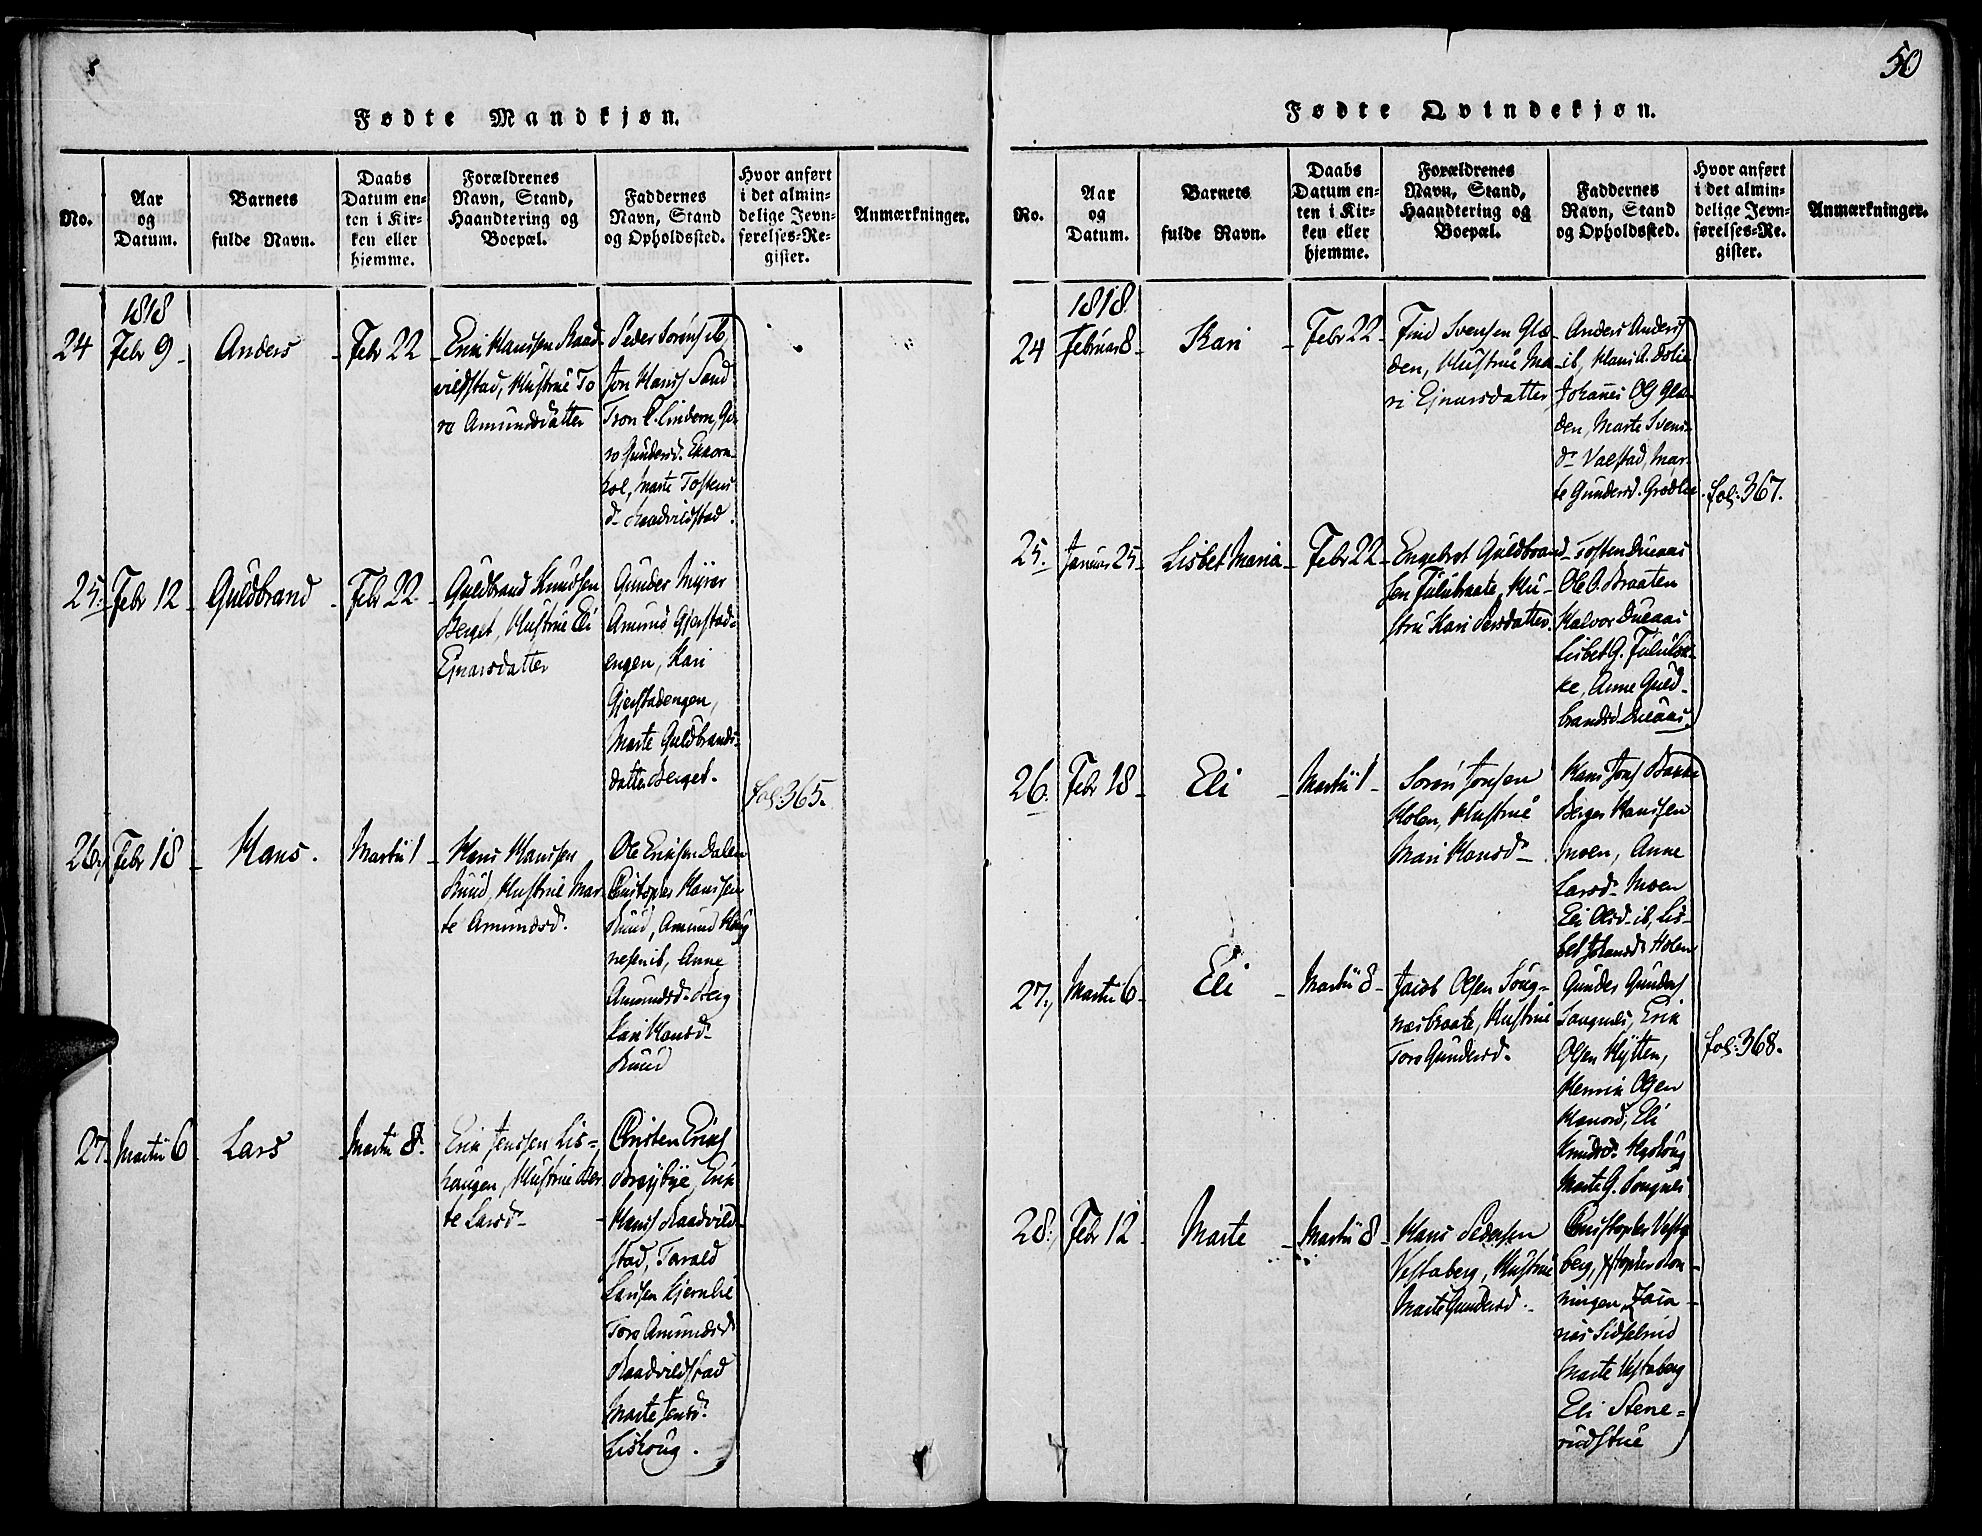 50
Fødte Mandkjøn.
No.
Aar
og
Datum.
Barnets
fulde Navn.
Daabs
Datum en-
ten i Kir-
ken eller
hjemme.
Forældrenes
Navn, Stand,
Haandtering og
Boepæl.
Faddernes
Navn, Stand
og Opholdssted.
Hvor anført
i det almin-
delige Jevn-
førelses-Re-
gister.
Anmærkninger.
1818
24
Febr 9
Anders
Febr 22
Erik Hanssen Raad-
vildstad, Hustrue To
ra Amundsdatter
Peder Sørens ib,
Jon Hanss Sand
Tron
Gundersd.
Marte Tostens
d. Raadvildstad.
25.
Febr 12
Guldbrand
Febr 22
Guldbrand Knudsen
Berget, Hustrue Eli
Ejnarsdatter
Gunder Myrer
Amund Gjerstad-
engen, Kari
Gjerstadengen,
Marte Guldbrands-
datter Berget.
fol: 365.
26.
Febr 18
Hans.
Martii 1
Hans Hanssen
Ruud, Hustrue Mar
te Amundsd.
Ole Eriksen Dalen
Christopher Hanssen
Ruud, Amund
ib, Anne
Amundsd. Berg
Kari Hansd.
Ruud
27.
Martii 6
Lars
Martii 8.
Erik Jenssen Lis-
haugen, Hustrue Ber
te Larsd.
Christen Eriks
Erik
Hanss Raadvild-
stad, Torvald
Larssen
Tore Amundsd
Raadvildstad
Marte Jensd.
Lishoug.
Fødte Qvindekjøn.
No.
Aar
og
Datum.
Barnets
fulde Navn.
Daabs
Datum en-
ten i Kir-
ken eller
hjemme.
Forældrenes
Navn, Stand,
Haandtering og
Boepæl.
Faddernes
Navn, Stand
og Opholdssted.
Hvor anført
i det almin-
delige Jevn-
førelses-Re-
gister.
Anmærkninger.
1818
24
Februar 8
Kari
Febr 22
Find Svensen Glæ-
den, Hustrue Ma-
ri Ejnarsdatter
Anders Anders
ib, Hans A. Dolie
Johannes Ols Glæ-
den, Marte Svens-
d. Valstad, Mar-
te Gundersd. Grødlie
fol: 367.
25.
Januar 25
Lisbet Maria
Febr 22
Engebret Guldbrand
sen Julubraate, Hu-
strue Kari Persdatter.
Tosten Dueaas
Ole O. Braaten
Halvor Dueaas
Lisbet G. Julubak-
ke, Anne Guld-
brandsd Dueaas
26.
Febr 18
Eli
Martii 1
Søren Jonsen
Holen, Hustrue
Mari Hansd.
Hans Jons Bakke
Berger Hanssen
moen, Anne
Larsd. Moen
Eli Olsd. ib, Lis-
bet Johansd. Holen
27.
Martii 6
Eli
Martii 8
Jacob Olsen Soug-
næsbraate, Hustrue
Tore Gundersd.
Gunder Gunders
Sougnes, Erik
Olsen Hytten,
Henrik Olsen
Eli
Knudsd.
Marte G. Sougnes
fol: 368.
28.
Febr 12
Marte
Martii 8
Hans Pedersen
Vestaberg, Hustrue
Marte Gundersd.
Christopher Vesta
berg, Xstopher Røn-
ningen,
Marte Vestaberg
Eli Stene-
rudstue